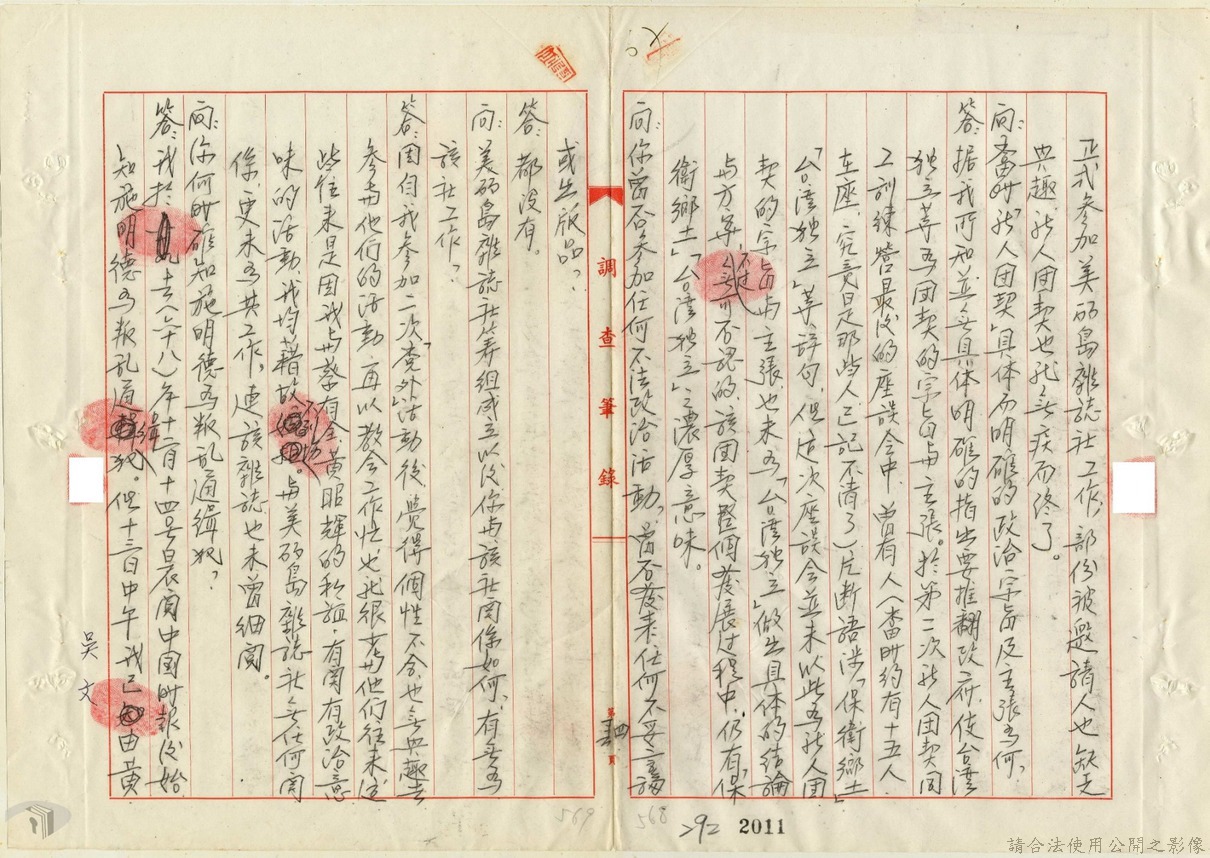 正式參加美丽島雜誌社工作,部份被邀請人也缺乏
興趣,新人團契也就無疾而終了。
問:當時「新人團契」具体而明確的政治宗旨及主張為何?
答:据我所知並無具体明確的指出要推翻政府,使台湾
独立等為團契的宗旨與主張。於第二次新人團契同
工訓練營最後的座談会中,曾有人(當時約有十五人
在座,究竟是那些人,已記不清了)片断語涉「保衛鄉土」
「台湾独立」等辞句,但这次座談会並未以此為新人團
契的宗旨與主張,也未為「台湾独立」做出具体的結論
與方案,不过無可否認的,該團契整個發展过程中,仍有「保
衛鄉土」「台湾独立」之濃厚意味。
問:你曾否參加任何不法政治活動?曾否發表任何不妥言論
或出版品?
答:都沒有。
問:美丽島雜誌社筹組成立以後你與該社関係如何?有無為
該社工作?
答:因自我參加二次「党外」活動後,覺得個性不合,也無興趣去
參與他們的活動,再以教会工作忙,也就很少與他們往来,这
些往来是因我與蔡有全、黃昭輝的私誼,有関有政治意
味的活動,我均藉故不到场。與美丽島雜誌社無任何関
係,更未為其工作,連該雜誌也未曾細閱。
問:你何時確知施明德為叛乱通緝犯?
答:我於六十八年十二月十四号晨閱中國時報後始
知施明德為叛乱通緝犯。但十三日中午我已由黃
調查筆錄
第 四 頁
吳文
568
569
292
2011
請合法使用公開之影像